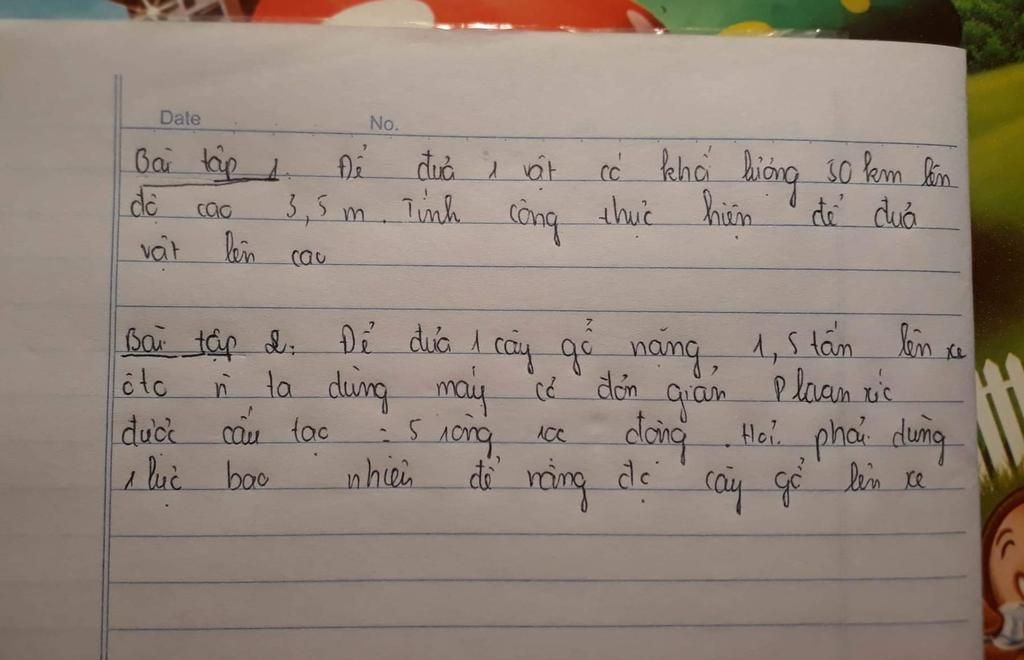 Date No.
Bài tập 1. Để đưa 1 vật có khối lượng 50 km lên
độ cao 3,5 m. Tính công thực hiện để đưa
vật lên cao
Bài tập 2. Để đưa 1 cây gỗ nặng 1,5 tấn lên xe
ôtô n ta dùng máy cơ đơn giản Plaan xíc
được cấu tạo = 5 ròng rọc động. Hỏi phải dùng
1 lực bao nhiêu để nâng đc cây gỗ lên xe